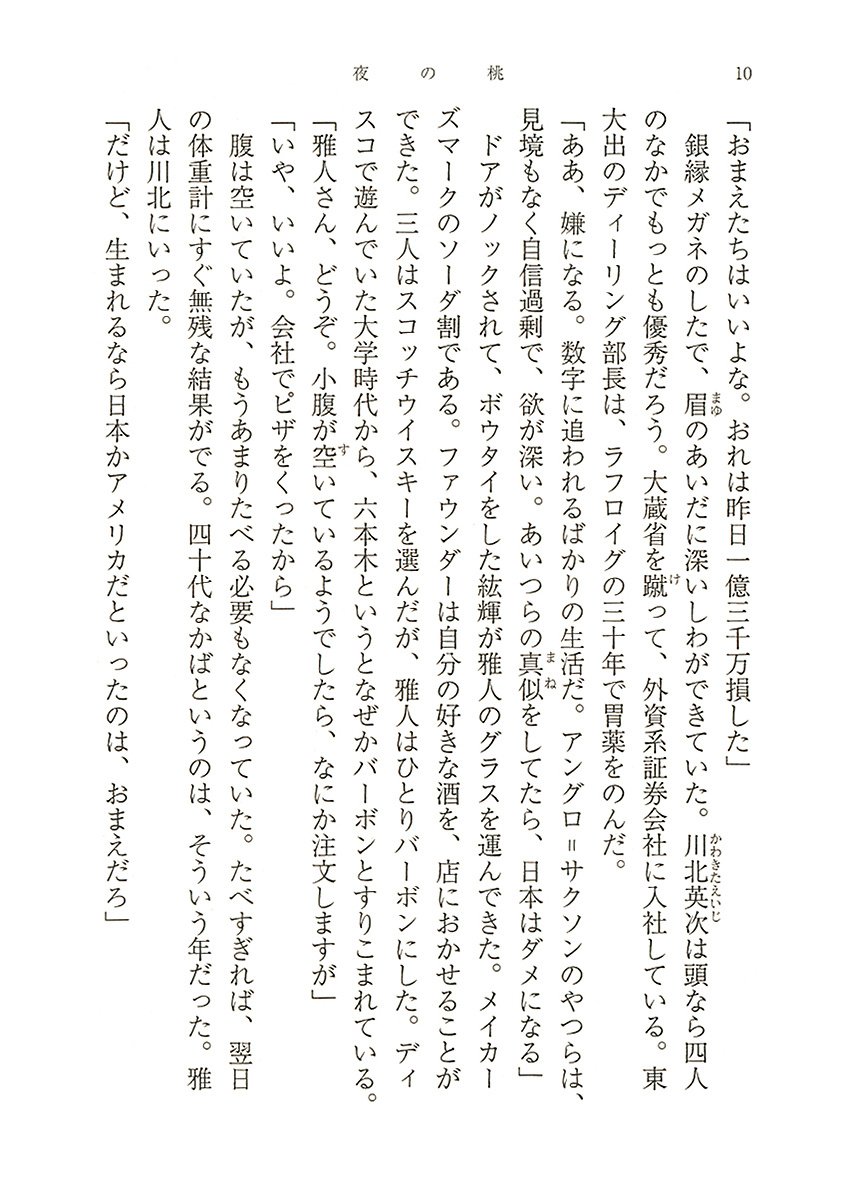 夜の桃
10
「おまえたちはいいよな。おれは昨日一億三千万損した」
銀縁メガネのしたで、眉のあいだに深いしわができていた。川北英次は頭なら四人
のなかでもっとも優秀だろう。大蔵省を蹴って、外資系証券会社に入社している。東
大出のディーリング部長は、ラフロイグの三十年で胃薬をのんだ。
「ああ、嫌になる。数字に追われるばかりの生活だ。アングロ＝サクソンのやつらは、
見境もなく自信過剰で、欲が深い。あいつらの真似をしてたら、日本はダメになる」
ドアがノックされて、ボウタイをした紘輝が雅人のグラスを運んできた。メイカー
ズマークのソーダ割である。ファウンダーは自分の好きな酒を、店におかせることが
できた。三人はスコッチウイスキーを選んだが、雅人はひとりバーボンにした。ディ
スコで遊んでいた大学時代から、六本木というとなぜかバーボンとすりこまれている。
「雅人さん、どうぞ。小腹が空いているようでしたら、なにか注文しますが」
「いや、いいよ。会社でピザをくったから」
腹は空いていたが、もうあまりたべる必要もなくなっていた。たべすぎれば、翌日
の体重計にすぐ無残な結果がでる。四十代なかばというのは、そういう年だった。雅
人は川北にいった。
「だけど、生まれるなら日本かアメリカだといったのは、おまえだろ」